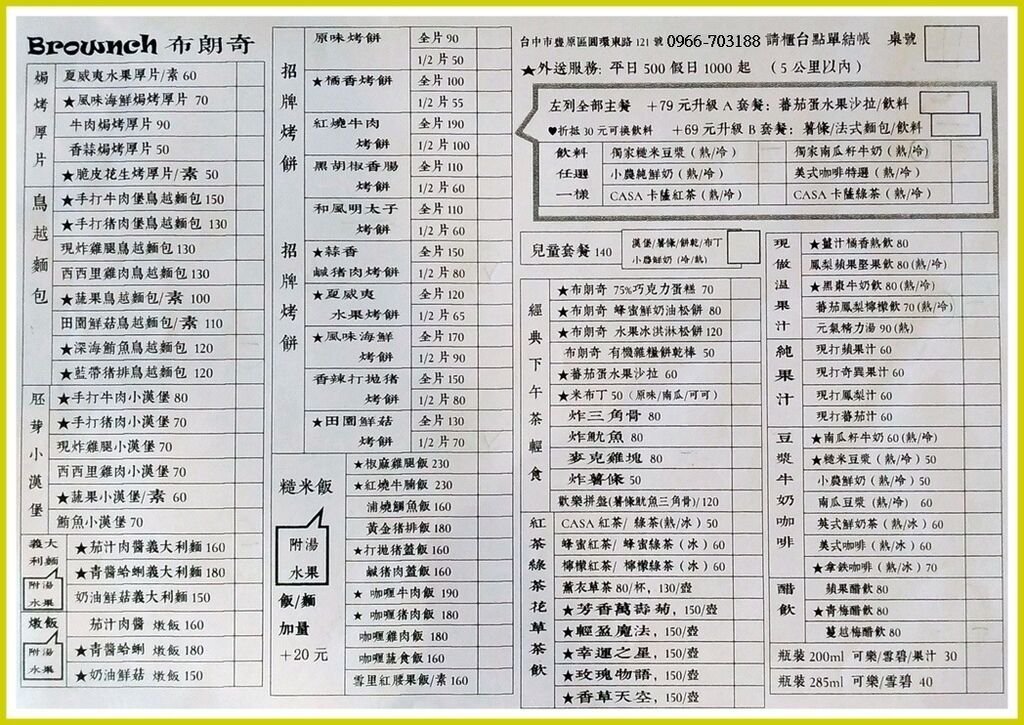 Brownch 布朗奇
焗烤厚片
夏威夷水果厚片/素 60
★風味海鮮焗烤厚片 70
牛肉焗烤厚片 90
香蒜焗烤厚片 50
★脆皮花生烤厚片/素 50
鳥越麵包
★手打牛肉堡鳥越麵包 150
★手打猪肉堡鳥越麵包 130
現炸雞腿鳥越麵包 130
西西里雞肉鳥越麵包 130
★蔬果鳥越麵包/素 100
田園鮮菇鳥越麵包/素 110
★深海鮪魚鳥越麵包 120
★藍帶猪排鳥越麵包 120
胚芽小漢堡
★手打牛肉小漢堡 80
★手打猪肉小漢堡 70
現炸雞腿小漢堡 70
西西里雞肉小漢堡 70
★蔬果小漢堡/素 60
鮪魚小漢堡 70
義大利麵
附湯水果
★茄汁肉醬義大利麵 160
★青醬蛤蜊義大利麵 180
奶油鮮菇義大利麵 150
燉飯
附湯水果
茄汁肉醬 燉飯 160
★青醬蛤蜊 燉飯 180
★奶油鮮菇 燉飯 150
招牌烤餅
招牌烤餅
原味烤餅 全片 90
1/2 片 50
★橘香烤餅 全片 100
1/2 片 55
紅燒牛肉烤餅 全片 190
1/2 片 100
黑胡椒香腸烤餅 全片 110
1/2 片 60
和風明太子烤餅 全片 110
1/2 片 60
★蒜香鹹猪肉烤餅 全片 150
1/2 片 80
★夏威夷水果烤餅 全片 120
1/2 片 65
★風味海鮮烤餅 全片 170
1/2 片 90
香辣打拋猪烤餅 全片 150
1/2 片 80
★田園鮮菇烤餅 全片 130
1/2 片 70
糙米飯
附湯水果
飯/麵加量+20 元
★椒麻雞腿飯 230
★紅燒牛腩飯 230
蒲燒鯛魚飯 160
黃金猪排飯 180
★打拋猪蓋飯 160
鹹猪肉蓋飯 160
★ 咖喱牛肉飯 190
★ 咖喱猪肉飯 180
咖喱雞肉飯 180
咖喱蔬食飯 160
雪里紅腰果飯/素 160
台中市豐原區圓環東路 121 號 0966-703188 請櫃台點單結帳 桌號
★外送服務: 平日 500 假日 1000 起 (5 公里以內)
左列全部主餐 +79 元升級 A 套餐: 蕃茄蛋水果沙拉/飲料
♥折抵 30 元可換飲料 +69 元升級 B 套餐: 薯條/法式麵包/飲料
飲料任選一樣
獨家糙米豆漿 (熱/冷) 獨家南瓜籽牛奶 (熱/冷)
小農純鮮奶 (熱/冷) 美式咖啡特選 (熱/冷)
CASA 卡薩紅茶 (熱/冷) CASA 卡薩綠茶 (熱/冷)
兒童套餐 140
漢堡/薯條/餅乾/布丁
小農鮮奶 (冷/熱)
經典下午茶輕食
★布朗奇 75%巧克力蛋糕 70
★布朗奇 蜂蜜鮮奶油松餅 80
★布朗奇 水果冰淇淋松餅 120
布朗奇 有機雜糧餅乾棒 50
★蕃茄蛋水果沙拉 60
★米布丁 50 (原味/南瓜/可可)
炸三角骨 80
炸魷魚 80
麥克雞塊 80
炸薯條 50
歡樂拼盤(薯條魷魚三角骨)/120
紅茶綠茶花草茶飲
CASA 紅茶/ 綠茶(熱/冰) 50
蜂蜜紅茶/ 蜂蜜綠茶 (冰) 60
檸檬紅茶/ 檸檬綠茶 (冰) 60
薰衣草茶 80/杯, 130/壺
★芳香萬壽菊, 150/壺
★輕盈魔法, 150/壺
★幸運之星, 150/壺
★玫瑰物語, 150/壺
★香草天空, 150/壺
現做溫果汁
★薑汁橘香熱飲 80
鳳梨蘋果堅果飲 80 (熱/冷)
★黑棗牛奶飲 80(熱/冷)
蕃茄鳳梨檸檬飲 70 (熱/冷)
元氣精力湯 90 (熱)
純果汁
現打蘋果汁 60
現打奇異果汁 60
現打鳳梨汁 60
現打蕃茄汁 60
豆漿牛奶咖啡
★南瓜籽牛奶 60 (熱/冷)
★糙米豆漿 (熱/冷) 50
小農鮮奶 (熱/冷) 50
南瓜豆漿 (熱/冷) 60
英式鮮奶茶 (熱/冰) 60
美式咖啡 (熱/冰) 60
★拿鐵咖啡 (熱/冰) 70
醋飲
蘋果醋飲 80
★青梅醋飲 80
蔓越梅醋飲 80
瓶裝 200ml 可樂/雪碧/果汁 30
瓶裝 285ml 可樂/雪碧 40